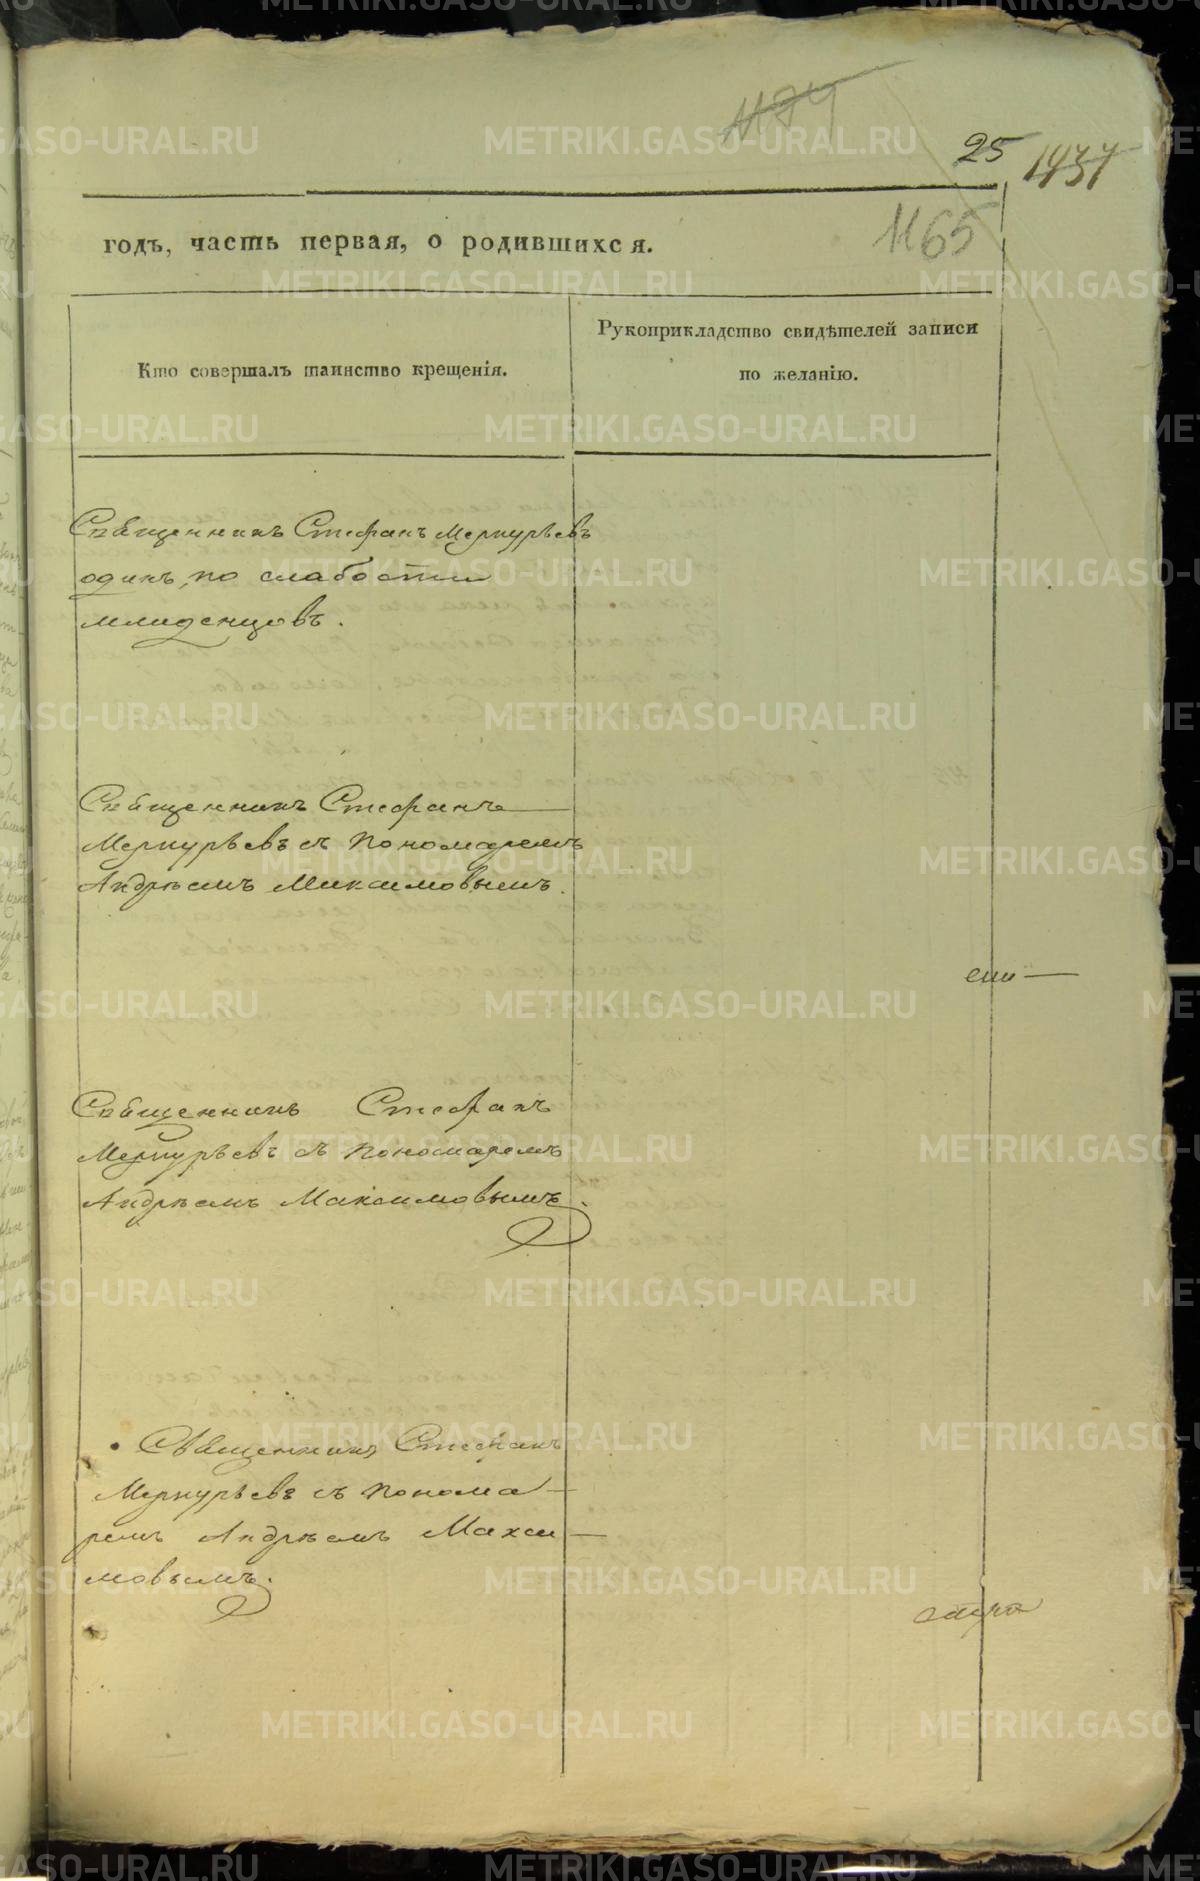 1174
25 1437
1165
годъ, часть первая, о родившихся.
Кто совершалъ таинство крещенія.
Рукоприкладство свидѣтелей записи
по желанію.
Священникъ Стефанъ Меркурьевъ
одинъ, по слабости
младенцовъ.
Священникъ Стефанъ
Меркурьевъ съ пономаремъ
Андреемъ Максимовымъ.
Священникъ Стефанъ
Меркурьевъ съ пономаремъ
Андреемъ Максимовымъ.
Священникъ Стефанъ
Меркурьевъ съ понома-
ремъ Андреемъ Макси-
мовымъ.
METRIKI.GASO-URAL.RU